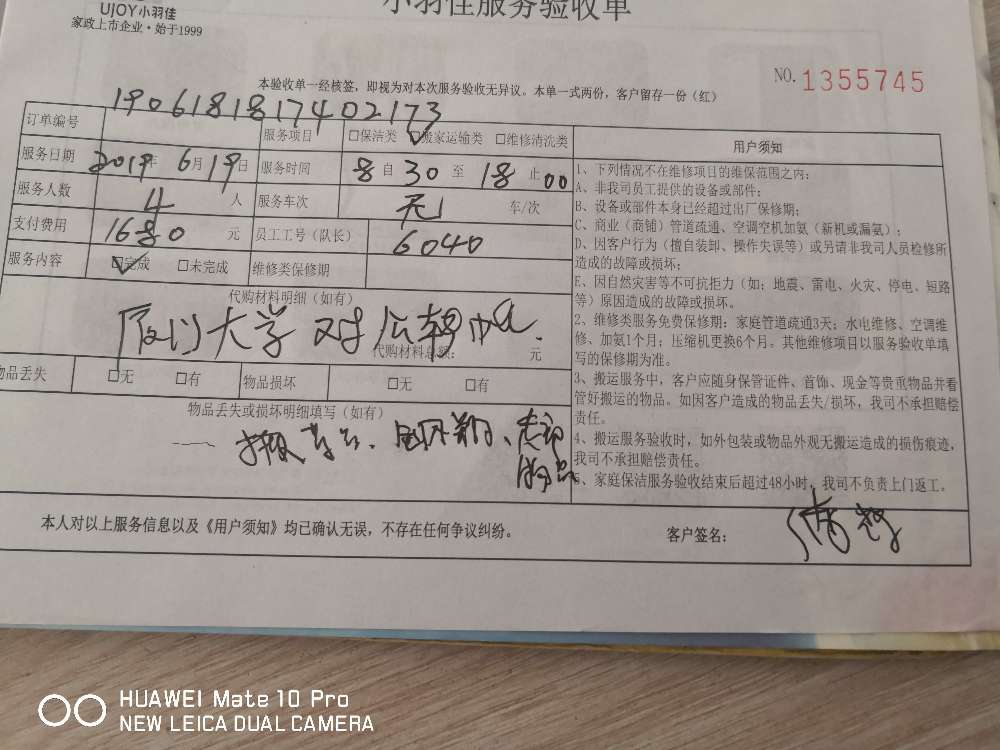 UJOY小羽佳
家政上市企业·始于1999
小羽佳服务验收单
NO.1355745
本验收单一经核签,即视为对本次服务验收无异议。本单一式两份,客户留存一份(红)
订单编号 1906181817402173
服务项目 □保洁类 □搬家运输类 □维修清洗类
服务日期 2019年6月19日 服务时间 8自30至18止00
服务人数 4人 服务车次 无 车/次
支付费用 1680元 员工工号(队长) 6040
服务内容 □完成 □未完成 维修类保修期
代购材料明细(如有)
厦门大学 对公转
代购材料总额: 元
物品丢失 □无 □有 物品损坏 □无 □有
物品丢失或损坏明细填写(如有)
用户须知
1、下列情况不在维修项目的维保范围之内:
A、非我司员工提供的设备或部件;
B、设备或部件本身已经超过出厂保修期;
C、商业(商铺)管道疏通、空调空机加氨(新机或漏氨);
D、因客户行为(擅自装卸、操作失误等)或另请非我司人员检修所
造成的故障或损坏;
E、因自然灾害等不可抗拒力(如:地震、雷电、火灾、停电、短路
等)原因造成的故障或损坏。
2、维修类服务免费保修期:家庭管道疏通3天;水电维修、空调维
修、加氨1个月;压缩机更换6个月。其他维修项目以服务验收单填
写的保修期为准。
3、搬运服务中,客户应随身保管证件、首饰、现金等贵重物品并看
管好搬运的物品。如因客户造成的物品丢失/损坏,我司不承担赔偿
责任。
4、搬运服务验收时,如外包装或物品外观无搬运造成的损伤痕迹,
我司不承担赔偿责任。
5、家庭保洁服务验收结束后超过48小时,我司不负责上门返工。
本人对以上服务信息以及《用户须知》均已确认无误,不存在任何争议纠纷。
客户签名:
HUAWEI Mate 10 Pro
NEW LEICA DUAL CAMERA